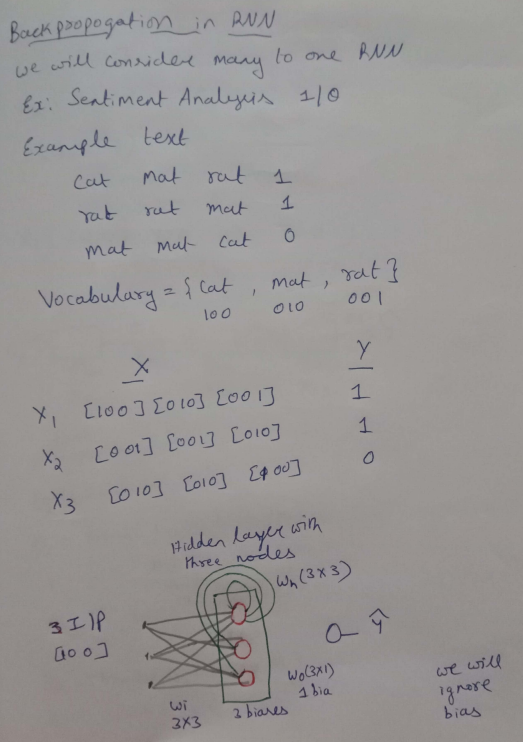 Backpropogation in RNN
we will consider many to one RNN
Ex: Sentiment Analysis 1/0
Example text
Cat mat rat 1
rat rat mat 1
mat mat cat 0
Vocabulary = { Cat , mat , rat }
100 010 001
X Y
X1 [100] [010] [001] 1
X2 [001] [001] [010] 1
X3 [010] [010] [100] 0
Hidden layer with
three nodes
Wh (3x3)
3 I/P
[100]
Ŷ
Wi
3x3
3 biases
Wo(3x1)
1 bia
we will
ignore
bias